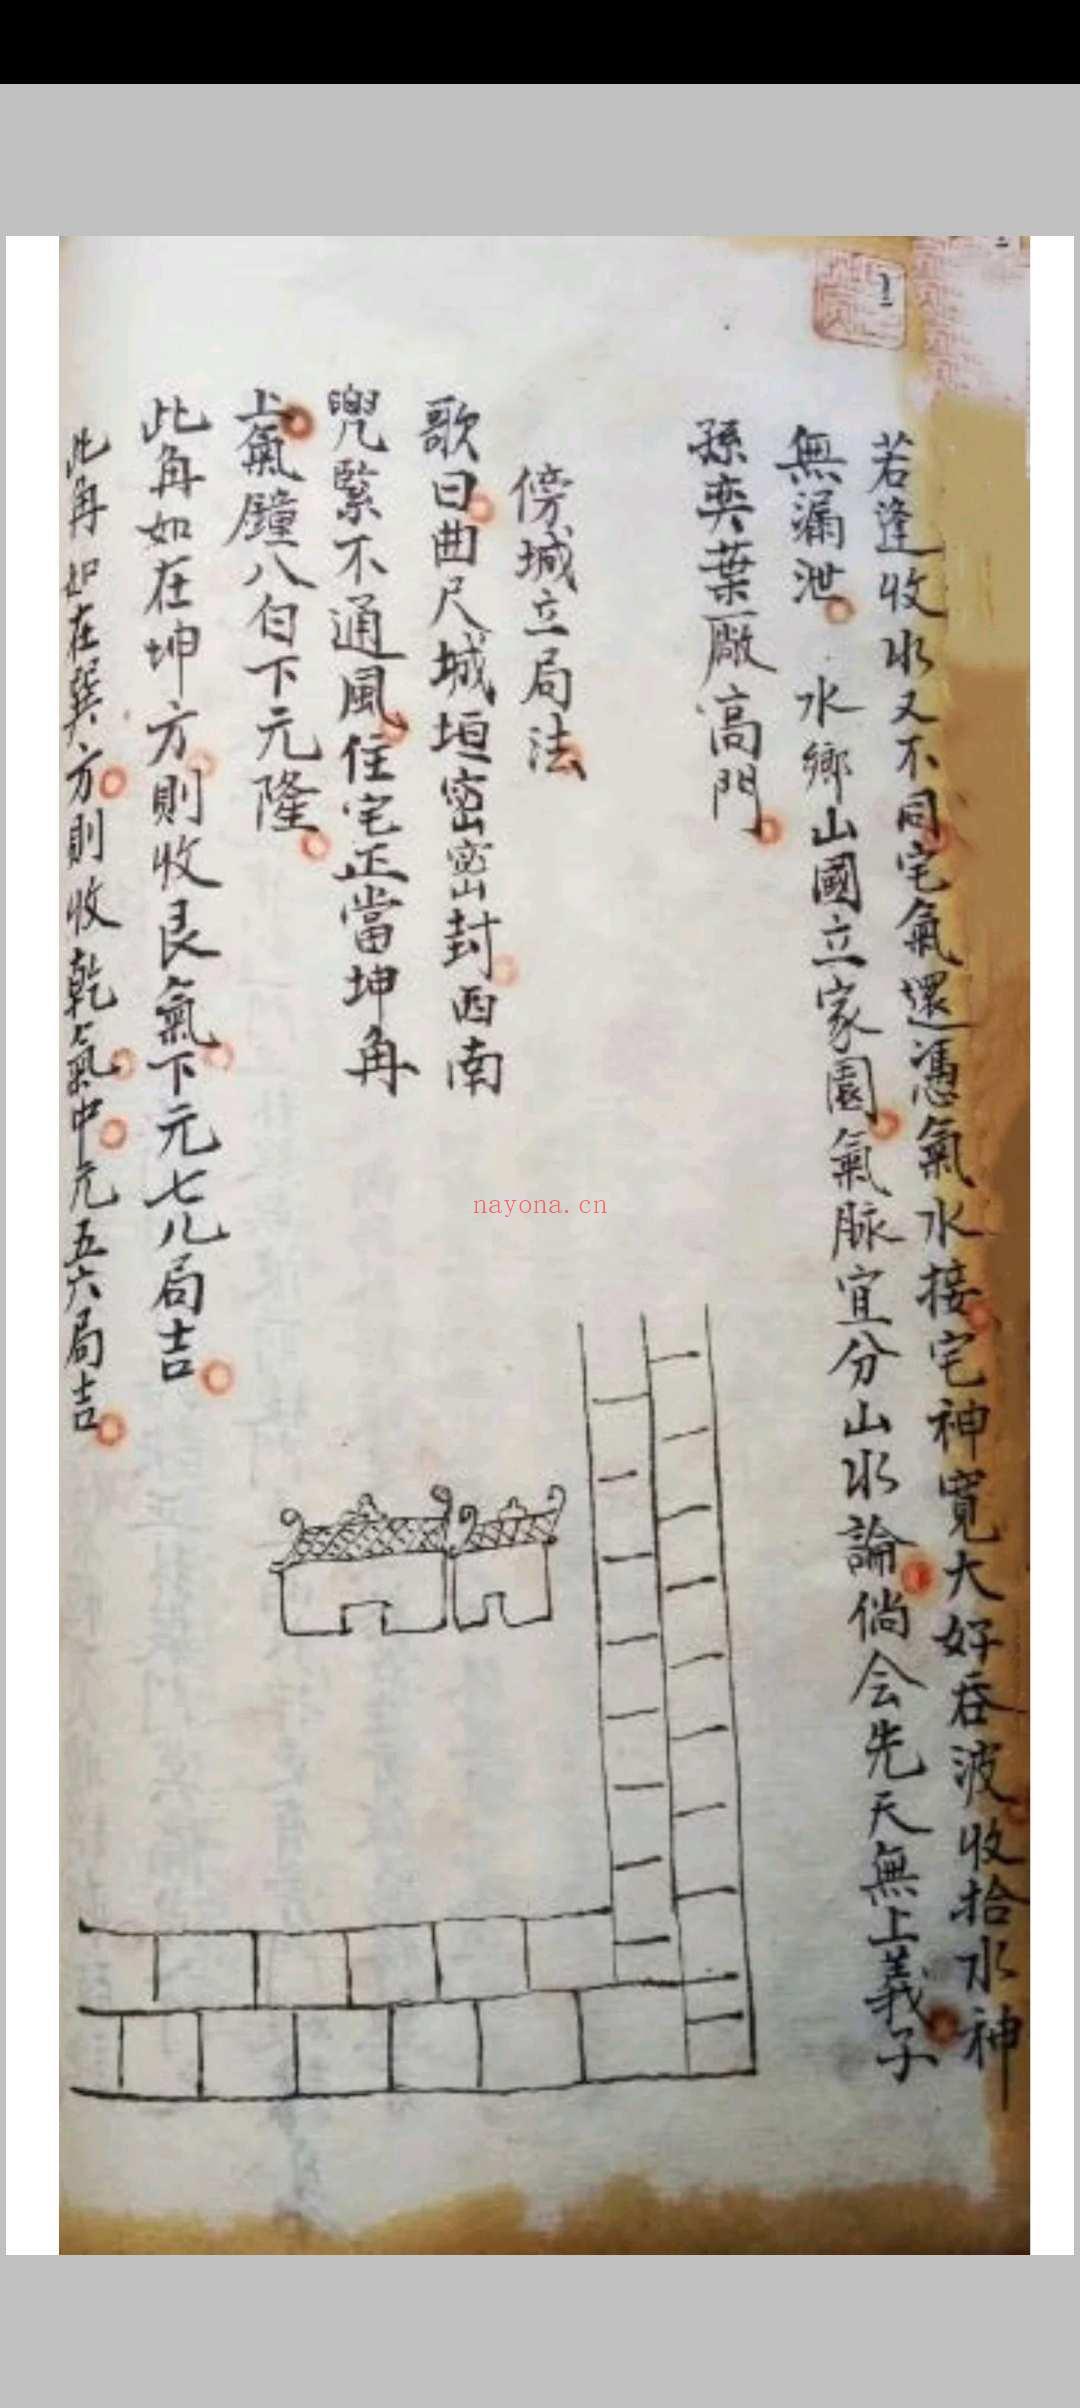 若逢收水又不同宅氣還憑氣水接宅神寬大好吞波收拾水神
無漏泄 水鄉山國立家園氣脉宜分山水論倘会先天無上義子
孫奕葉廠高門
傍城立局法
歌曰曲尺城垣密密封西南
兜緊不通風住宅正當坤角
上氣鐘八白下元隆
此角如在坤方則收艮氣下元七八局吉
此角如在巽方則收乾氣中元五六局吉
nayona.cn